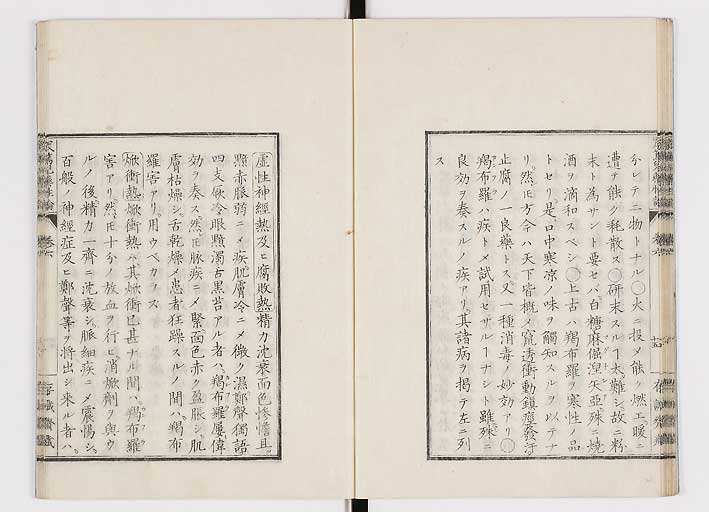 分レテ二物トナル○火ニ投メ能ク燃エ暖ニ
遭テ能ク耗散ス○研末スルヿ太難シ故ニ粉
末ト為サント要セバ白糖麻倔涅矢亜殊ニ焼
酒ヲ滴和スベシ○上古ハ羯布羅ヲ寒性ノ品
トセリ是口中寒凉ノ味ヲ觸知スルヲ以テナ
リ然𪜈方今ハ天下皆概メ竄透衝動鎮痙發汗
止腐ノ一良藥トス又一種消毒ノ妙効アリ○
羯布羅ハ疾トメ試用セザルヿナシト雖殊ニ
良効ヲ奏スルノ疾アリ其諸病ヲ掲テ左ニ列
ス
虚性神經熱及ヒ腐敗熱精力沈衰面色惨憺且
黙赤脈弱ニメ疾肌膚冷ニメ微ク濕鄭聲獨語
四支厥冷眼黯濁舌黒苔アル者ハ羯布羅屢偉
効ヲ奏ス然𪜈脉疾ニメ緊面色赤ク盈脹シ肌
膚枯燥シ舌乾燥メ患者狂躁スルノ間ハ羯布
羅害アリ用ウベカラス
焮衝熱焮衝熱ハ其焮衝已甚ナル間ハ羯布羅
害アリ然𪜈十分ノ放血ヲ行ヒ消焮劑ヲ與ウ
ルノ後精力一齊ニ沈衰シ脈細疾ニメ震惕シ
百般ノ神經症及ヒ鄭聲等ヲ將出シ來ル者ハ